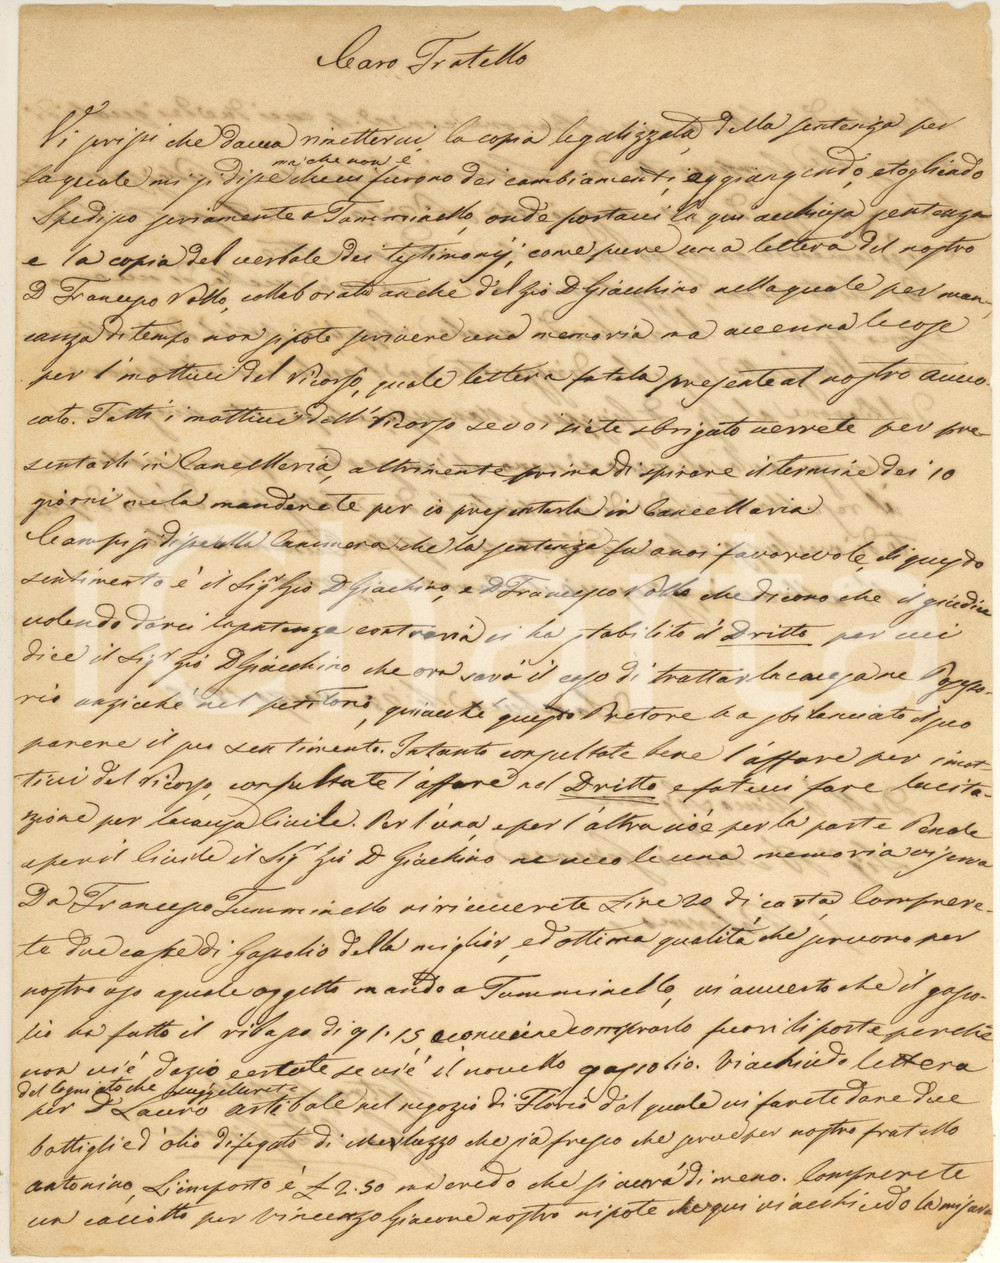 Caro Fratello
Vi scrissi che dava rimettervi la copia legalizzata, della sentenza per
ma che non è
la quale mi si disse che vi furono dei cambiamenti, aggiungendo, e togliendo
Spedisco seriamente a Tumminello, onde portarvi la qui acchiusa sentenza
e la copia del verbale dei testimonj, come pure una lettera del nostro
D. Francesco Vollo, collaborata anche del Zio D. Giacchino nella quale per man-
canza di tempo non si potè scrivere una memoria ma accenna le cose
per i mottivi del Ricorso, quale lettera fatela presente al nostro avvo-
cato. Fatti i mottivi dell' Ricorso se voi siete sbrigato verrete per pre-
sentarli in Cancelleria, altrimente prima di spirare il termine dei 10
giorni me la manderete per io presentarla in Cancelleria
Campisi disse alla Canimera che la sentenza fu a noi favorevole, di questo
sentimento è il Sigr Zio D. Giachino, e D. Francesco Vollo che dicono che il giudice
volendo darci la sentenza contraria ci ha stabilito il Dritto per cui
dice il Sigr Zio D. Giacchino che ora sarà il caso di trattar la causa ne Possesso-
rio anzichè nel petitorio, giacchè questo Pretore ha sbilanciato il suo
parere il suo sentimento. Intanto consultate bene l'affare per i mot-
tivi del Ricorso, consultate l'affare nel Dritto e fatevi fare la cita-
zione per la causa Civile. Per l'una e per l'altra cioè per la parte Penale
e per il Civile il Sigr Zio D. Giachino ne vuole una memoria
Da Francesco Tumminello vi riceverete Lire 20 di carta, Comprere-
te due casse di Gasolio della miglior, ed ottima qualità che servono per
nostro uso a quale oggetto mando a Tumminello, vi avverto che il gaso-
lio ha fatto il ribasso di conviene comprarlo fuori di porta perchè
non vi è dazio e se vi è il novello gasolio. Vi acchiudo lettera
del Cogniato che suggellerete
per D. Lauro nel negozio di Florio dal quale vi farete dare due
bottiglie d'olio di fegato di Merluzzo che sia fresco che serve per nostro fratello
Antonino, L'importo è £ 2.50 ma credo che si avrà di meno. Comprerete
un per Vincenzo Giacone nostro nipote che qui vi acchiudo la misura